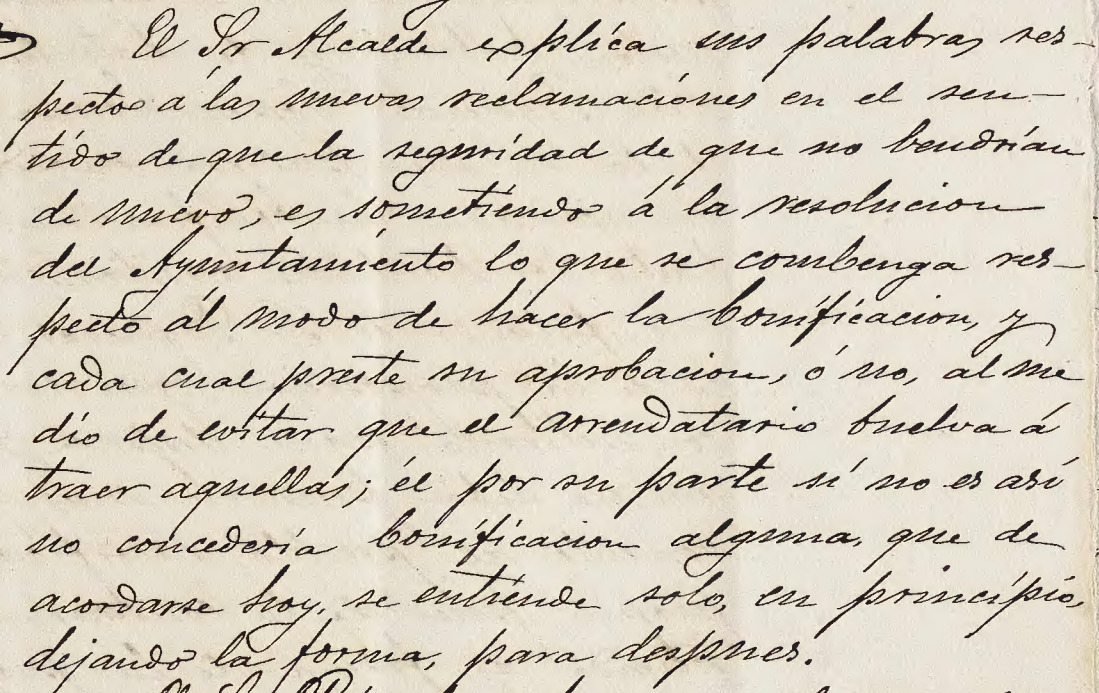 El Sr Alcalde explica sus palabras res-
pecto á las nuevas reclamaciones en el sen-
tido de que la seguridad de que no bendrian
de nuevo, es sometiendo á la resolucion
del Ayuntamiento lo que se combenga res-
pecto al modo de hacer la bonificacion, y
cada cual preste su aprobacion, ó no, al me
dio de evitar que el arrendatario buelva á
traer aquellas; él por su parte si no es asi
no concederia bonificacion alguna, que de
acordarse hoy, se entiende solo, en principio,
dejando la forma, para despues.
El Sr